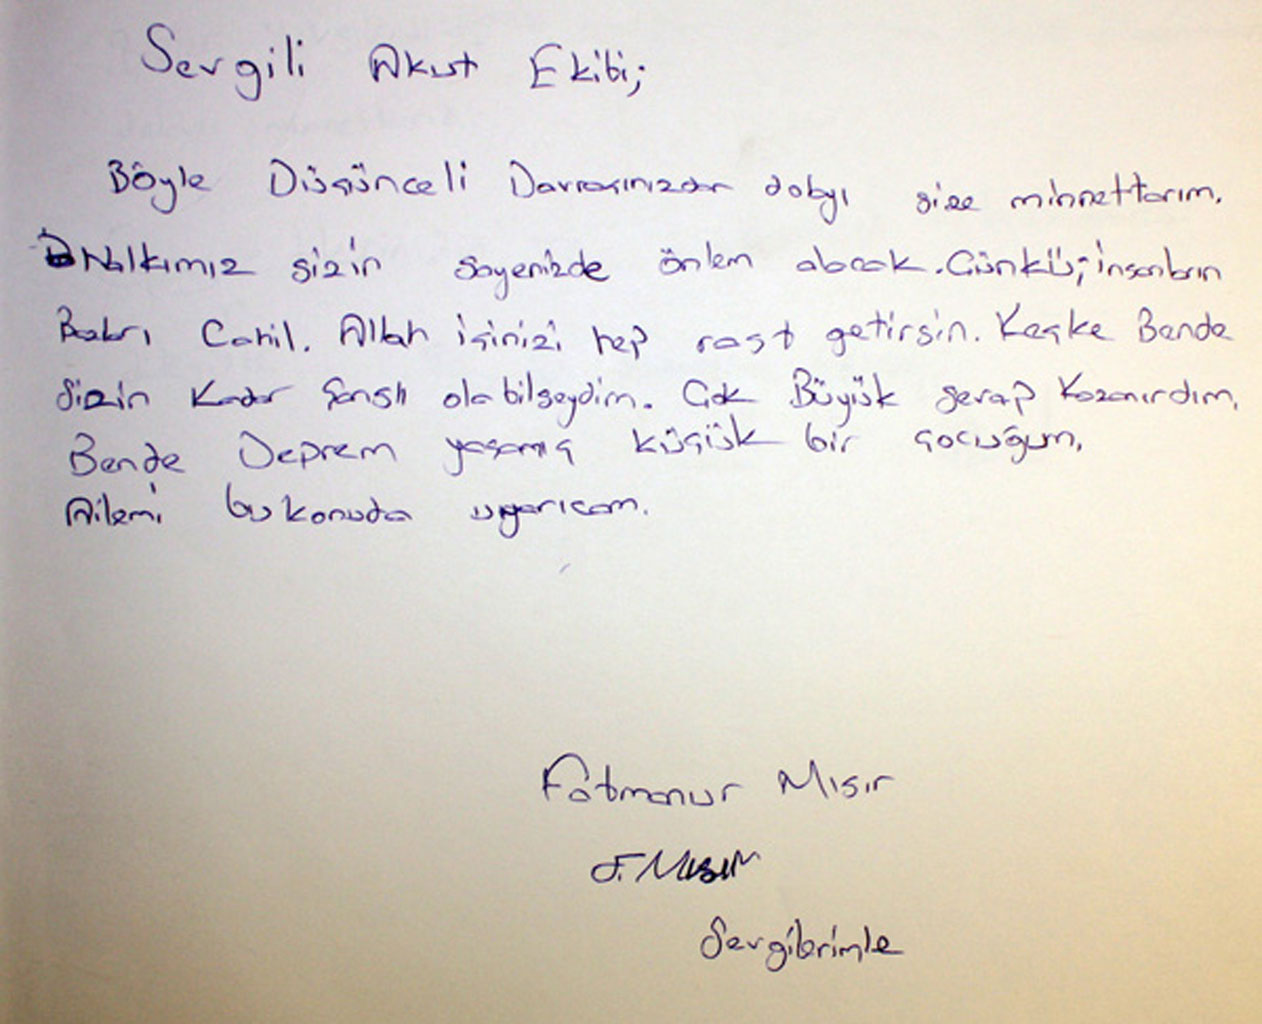 Sevgili Akut Ekibi;
Böyle Düşünceli Davranışınızdan dolayı size minnettarım.
Halkımız sizin sayenizde önlem alacak. Çünkü; insanların
Bazıları Cahil. Allah işinizi hep rast getirsin. Keşke Bende
Sizin Kadar Şanslı olabilseydim. Çok Büyük sevap Kazanırdım.
Bende Deprem yaşamış küçük bir çocuğum.
Ailemi bu konuda uyarıcam.
Fatmanur Mısır
F. Mısır
Sevgilerimle